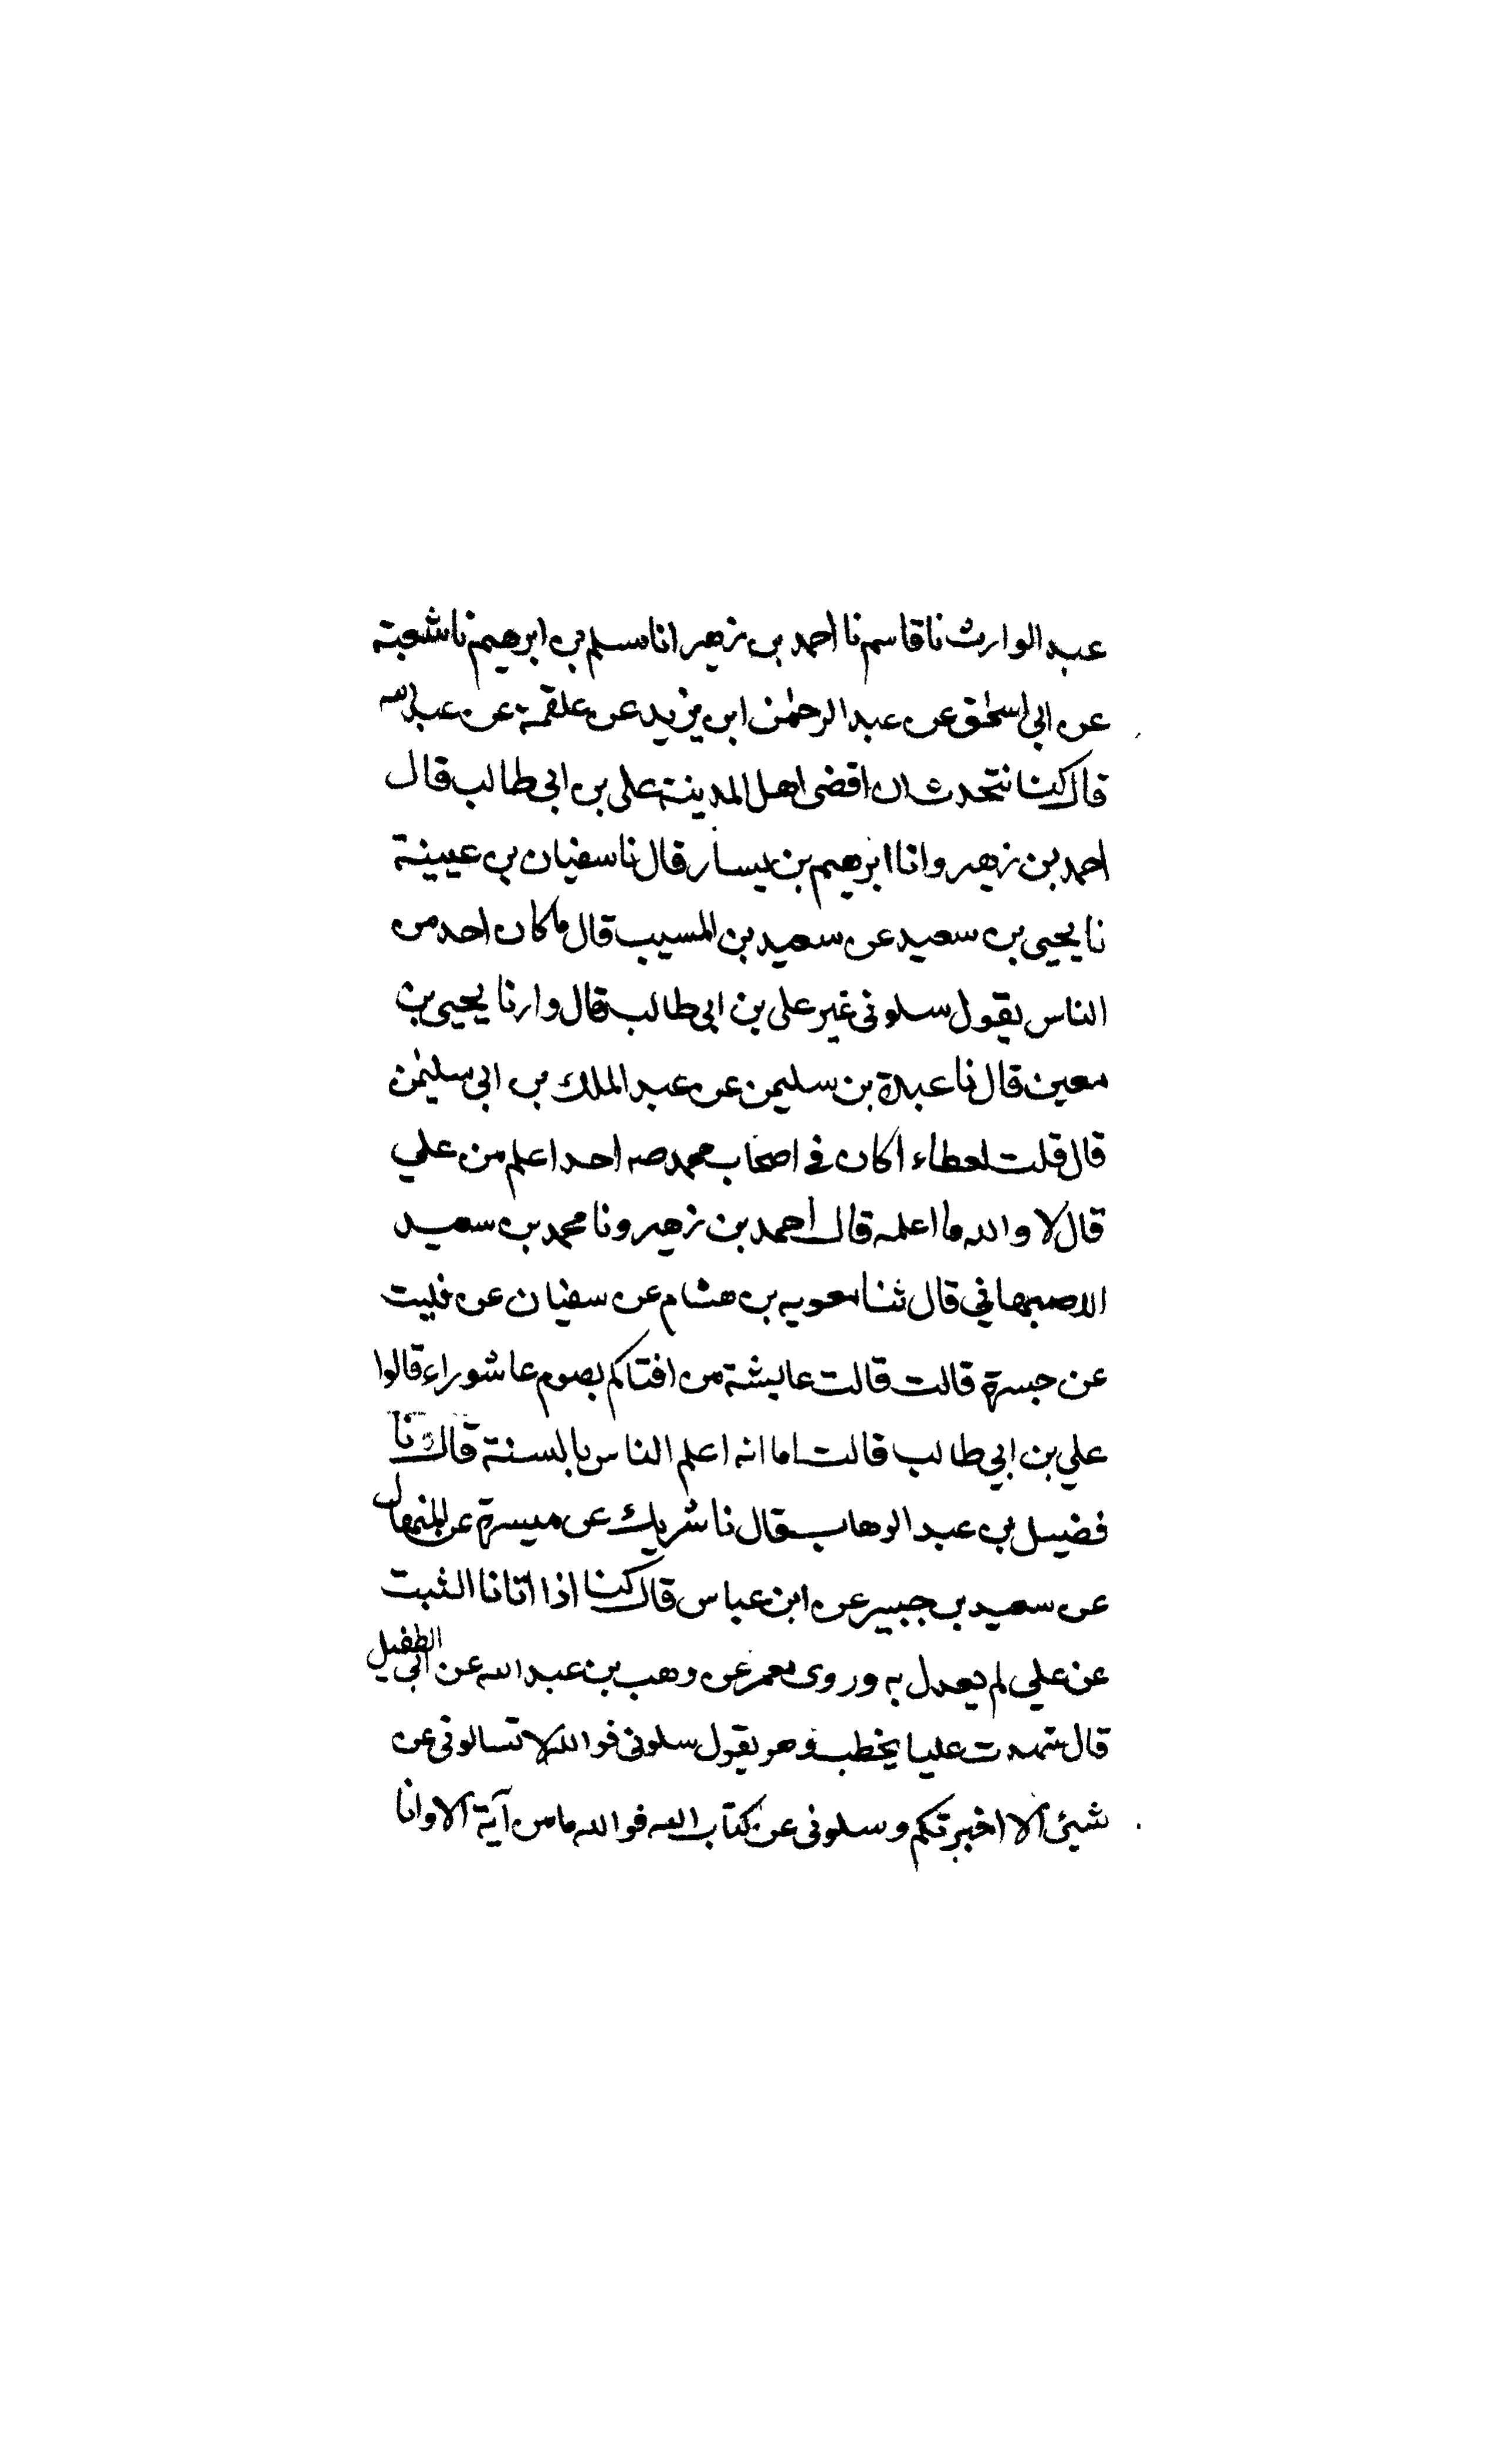 عبد الوارث نا قاسم نا احمد بن زهير انا مسلم بن ابرهيم نا شعبة
عن ابي اسحٰق عن عبد الرحمٰن ابن يزيد عن علقمة عن عبدالله
قال كنا نتحدث ان اقضى اهل المدينة على بن ابى طالب قال
احمد بن زهير وانا ابرهيم بن يسار قال نا سفيان بن عيينة
نا يحيى بن سعيد عن سعيد بن المسيب قال ما كان احد من
الناس يقول سلونى غير على بن ابى طالب قال وارنا يحيى بن
معين قال نا عبدة بن سليمن عن عبد الملك بن ابى سليمٰن
قال قلت لعطاء اكان فى اصحاب محمد صه احد اعلم من علي
قال لا والله ما اعلمه قال احمد بن زهير ونا محمد بن سعيد
الاصبهاني قال ثنا معويه بن هشام عن سفيان عن فليت
عن جسرة قالت قالت عايشة من افتاكم بصوم عاشوراء قالوا
علي بن ابي طالب قالت اما انه اعلم الناس بالسنة قال نا
فضيل بن عبد الوهاب قال نا شريك عن ميسرة عن المنهال
عن سعيد بن جبير عن ابن عباس قال كنا اذا اتانا الثبت
عن علي لم يعدل به وروى معمر عن وهب بن عبد الله عن ابي الطفيل
قال شهدت عليا يخطب وهو يقول سلونى فوالله لا تسالونى عن
شيئ الا اخبرتكم وسلونى عن كتاب الله فوالله ما من آية الا وانا